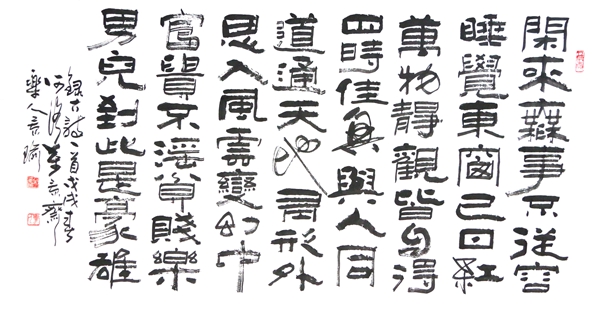 閑來無事不從容
睡覺東窗已日紅
萬物靜觀皆自得
四時佳興與人同
道通天地有形外
思入風雲變幻中
富貴不淫貧賤樂
男兒到此是豪雄
錄古詩一首戊戌春